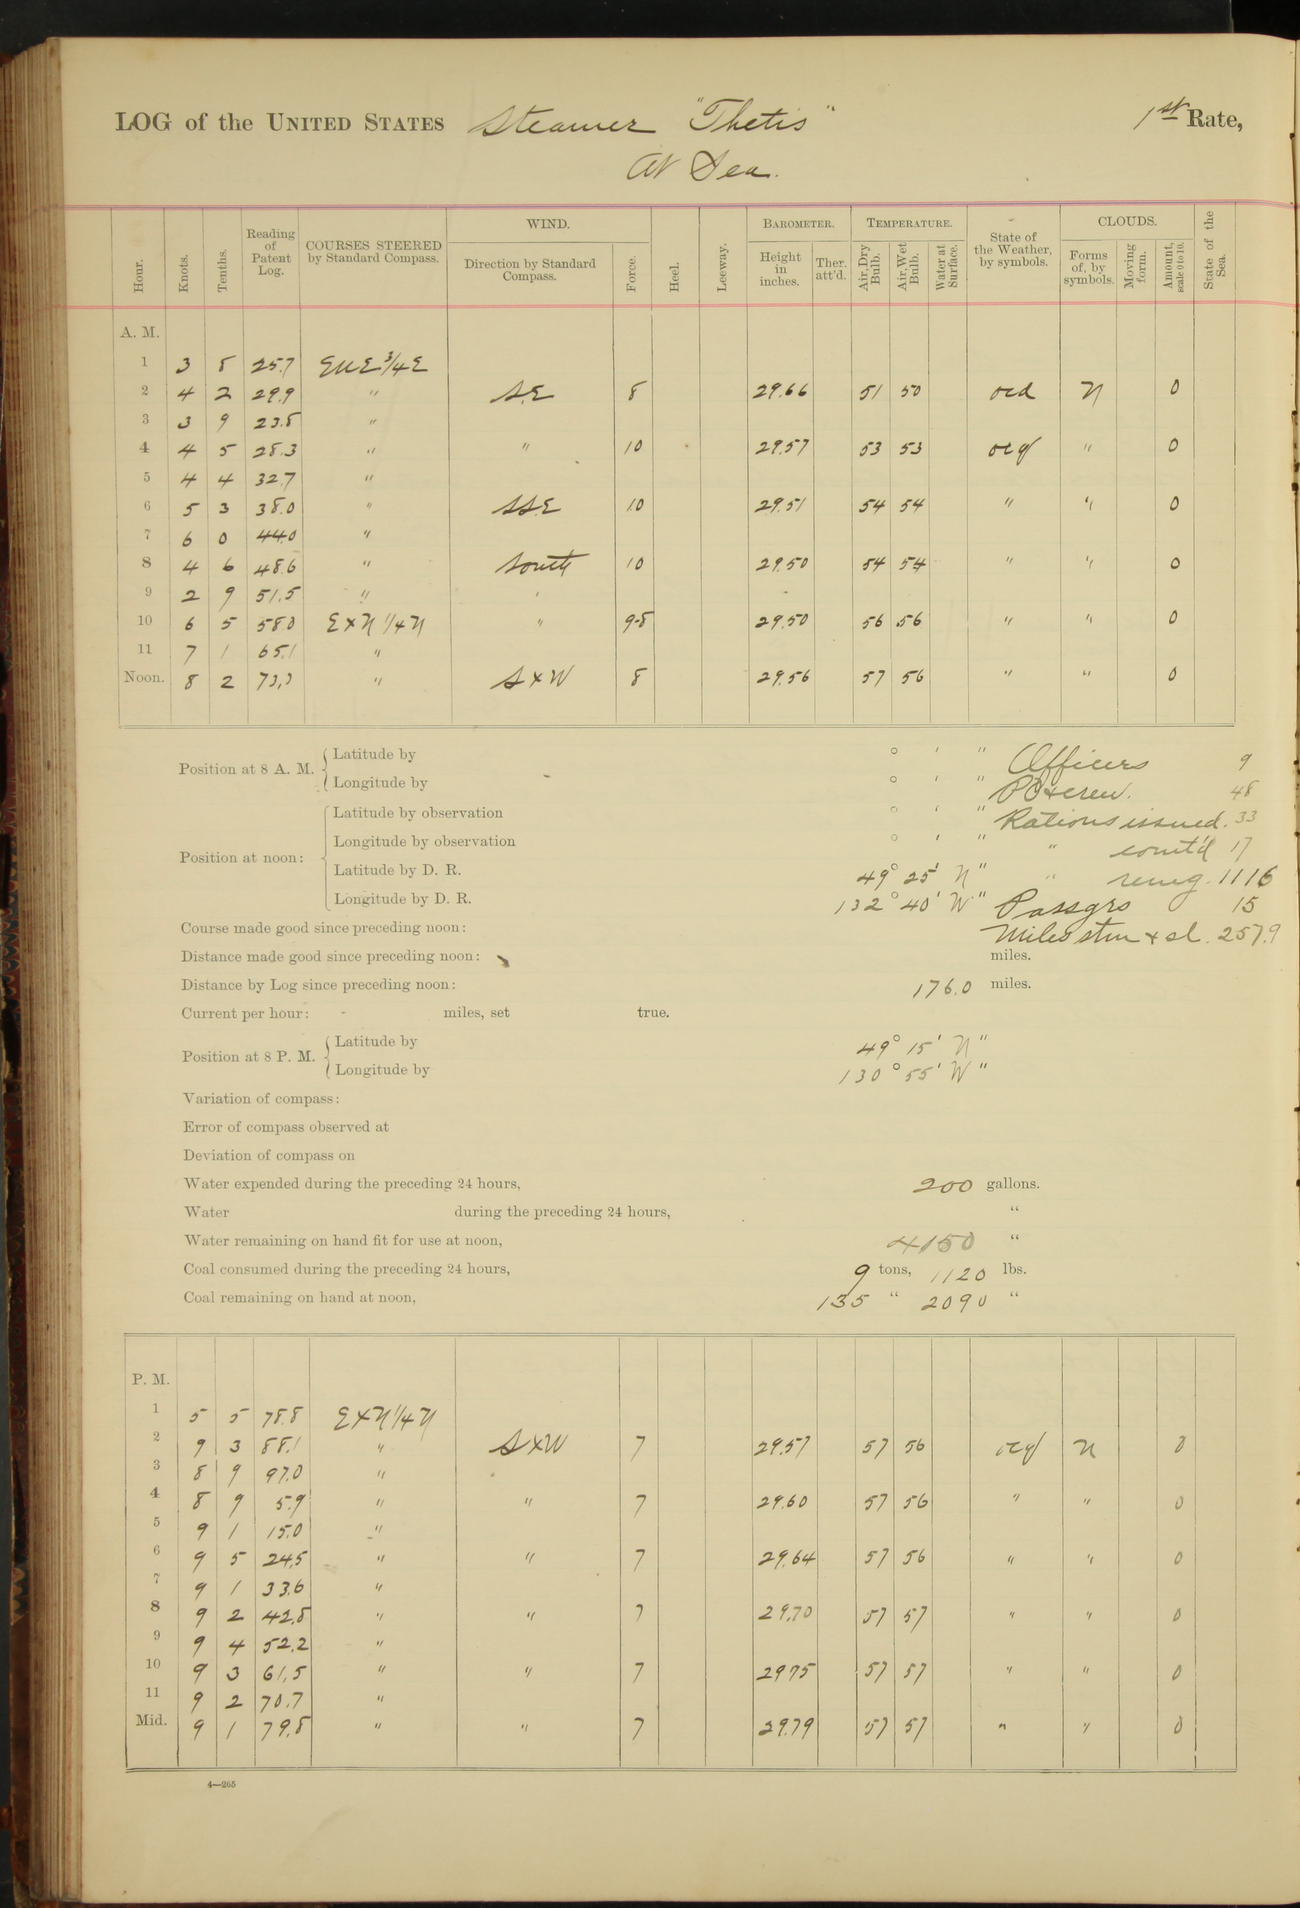 LOG of the UNITED STATES Steamer "Thetis" 1st Rate,
At Sea.
Hour. Knots. Tenths. Reading of Patent Log. COURSES STEERED by Standard Compass. WIND. Direction by Standard Compass. Force. Heel. Leeway. BAROMETER. Height in inches. Ther. att'd. TEMPERATURE. Air, Dry Bulb. Air, Wet Bulb. Water at Surface. State of the Weather, by symbols. CLOUDS. Forms of, by symbols. Moving form. Amount, scale 0 to 10. State of the Sea.
A. M.
1 3 8 25.7 ENE 3/4 E
2 4 2 29.9 " SE 8 29.66 51 50 ocd N 0
3 3 9 23.8 "
4 4 5 28.3 " " 10 29.57 53 53 ocq " 0
5 4 4 32.7 "
6 5 3 38.0 " SSE 10 29.51 54 54 " " 0
7 6 0 44.0 "
8 4 6 48.6 " South 10 29.50 54 54 " " 0
9 2 9 51.5 "
10 6 5 58.0 E x N 1/4 N " 9-8 29.50 56 56 " " 0
11 7 1 65.1 "
Noon. 8 2 73.3 " S x W 8 29.56 57 56 " " 0
Position at 8 A. M. Latitude by ° ' " Officers 9
Longitude by ° ' " PO & crew. 48
Position at noon: Latitude by observation ° ' " Rations issued. 33
Longitude by observation ° ' " " comt'd 17
Latitude by D. R. 49° 25' N " " remg. 1116
Longitude by D. R. 132° 40' W " Passgrs 15
Course made good since preceding noon: Miles stm & sl. 257.9
Distance made good since preceding noon: miles.
Distance by Log since preceding noon: 176.0 miles.
Current per hour: miles, set true.
Position at 8 P. M. Latitude by 49° 15' N "
Longitude by 130° 55' W "
Variation of compass:
Error of compass observed at
Deviation of compass on
Water expended during the preceding 24 hours, 200 gallons.
Water during the preceding 24 hours, "
Water remaining on hand fit for use at noon, 4150 "
Coal consumed during the preceding 24 hours, 9 tons, 1120 lbs.
Coal remaining on hand at noon, 135 " 2090 "
P. M.
1 5 5 78.8 E x N 1/4 N
2 9 3 88.1 " S x W 7 29.57 57 56 ocq N 0
3 8 9 97.0 "
4 8 9 5.9 " " 7 29.60 57 56 " " 0
5 9 1 15.0 "
6 9 5 24.5 " " 7 29.64 57 56 " " 0
7 9 1 33.6 "
8 9 2 42.8 " " 7 29.70 57 57 " " 0
9 9 4 52.2 "
10 9 3 61.5 " " 7 29.75 57 57 " " 0
11 9 2 70.7 "
Mid. 9 1 79.8 " " 7 29.79 57 57 " " 0
4—265